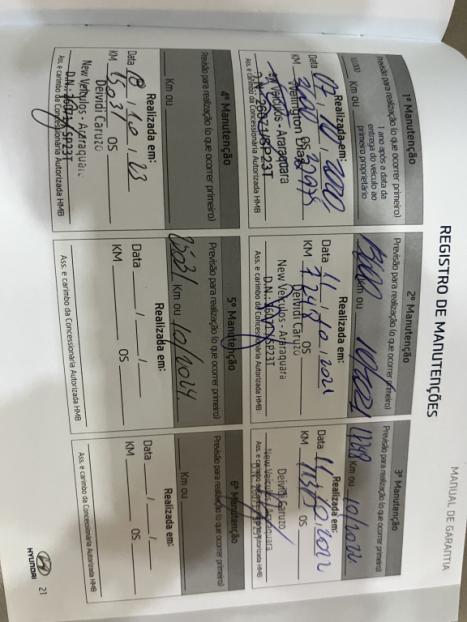 MANUAL DE GARANTIA
REGISTRO DE MANUTENÇÕES
1ª Manutenção
Previsão para realização (o que ocorrer primeiro)
10.000 Km ou
1 ano após a data de
entrega do veículo ao
primeiro proprietário
Realizada em:
Data 07
KM OS
Wellington
Veículos - Araraquara
Ass. e carimbo da Concessionária Autorizada HMB
2ª Manutenção
Previsão para realização (o que ocorrer primeiro)
Km ou
Realizada em:
Data 11 / 10 / 2021
KM OS
Deividi Caruzo
New Veículos - Araraquara
Ass. e carimbo da Concessionária Autorizada HMB
3ª Manutenção
Previsão para realização (o que ocorrer primeiro)
Km ou 10/2022
Realizada em:
Data
KM OS
Deividi Caruzo
New Veículos - Araraquara
Ass. e carimbo da Concessionária Autorizada HMB
4ª Manutenção
Previsão para realização (o que ocorrer primeiro)
Km ou
Realizada em:
Data 18 / 10 / 23
KM 15031 OS
Deividi Caruzo
New Veículos - Araraquara
Ass. e carimbo da Concessionária Autorizada HMB
5ª Manutenção
Previsão para realização (o que ocorrer primeiro)
Km ou 10/2024
Realizada em:
Data / /
KM OS
Ass. e carimbo da Concessionária Autorizada HMB
6ª Manutenção
Previsão para realização (o que ocorrer primeiro)
Km ou
Realizada em:
Data / /
KM OS
Ass. e carimbo da Concessionária Autorizada HMB
HYUNDAI
21